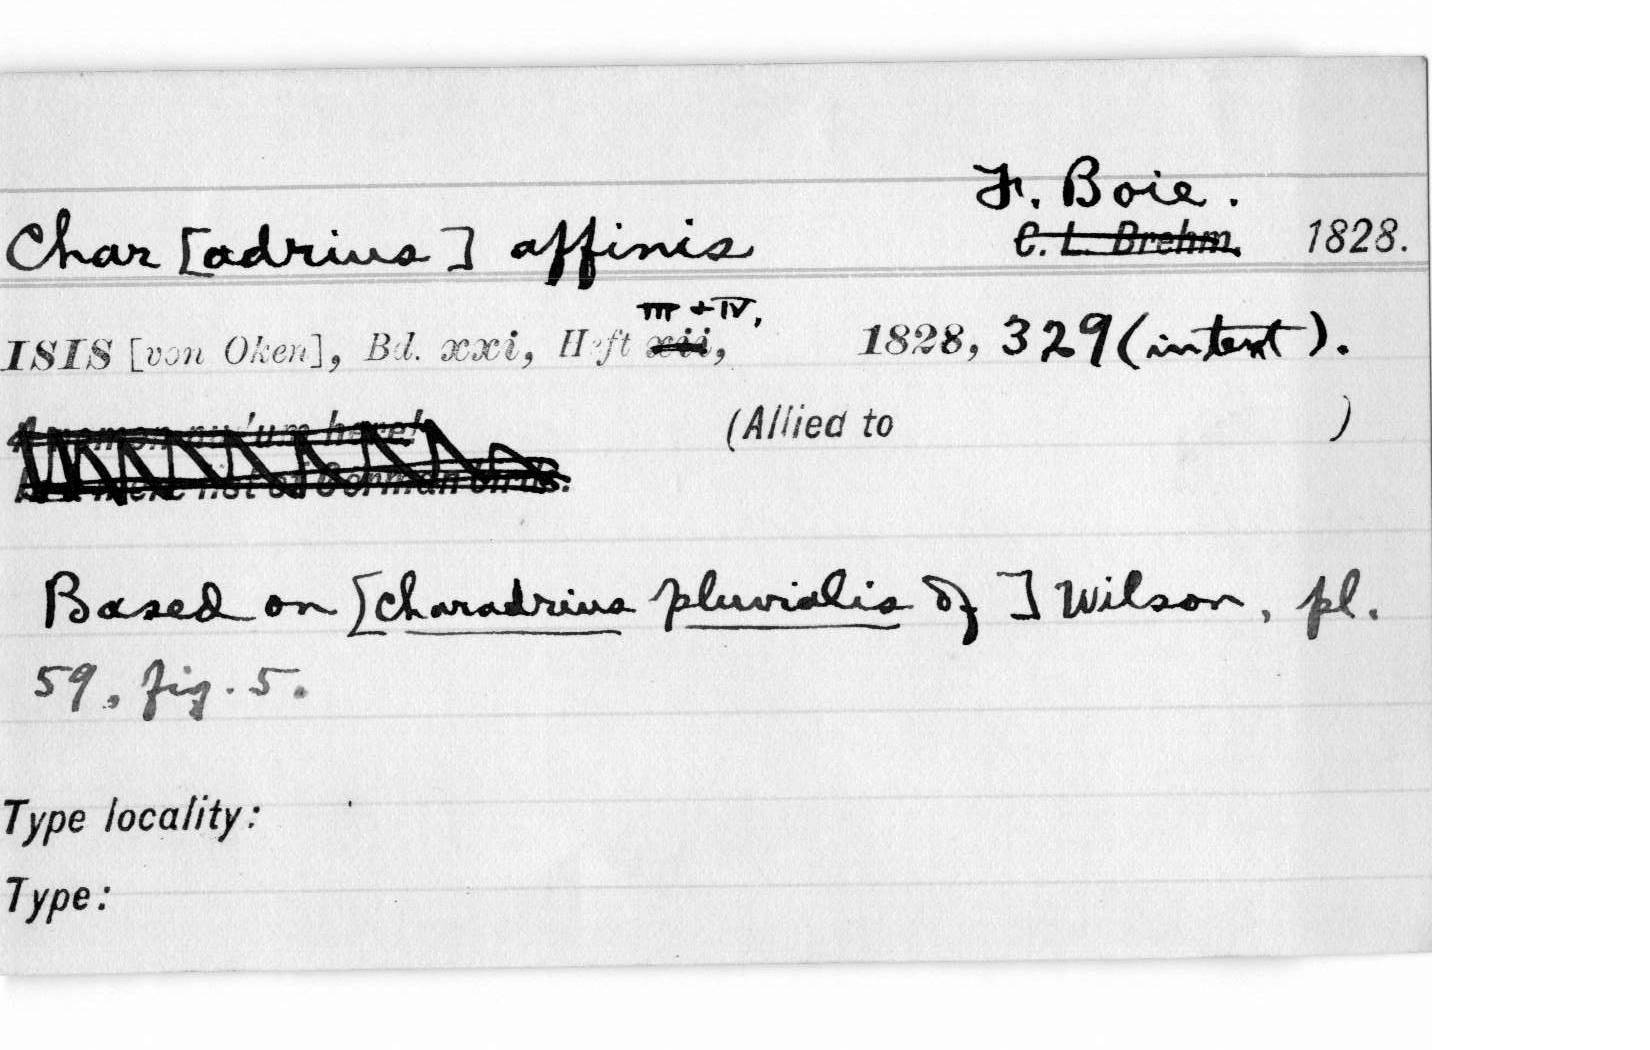 F. Boie.
Char [adrius] affinis C. L. Brehm. 1828.
III + IV,
ISIS [von Oken], Bd. xxi, Heft xii, 1828, 329 (in text).
A nomen nudum here! (Allied to )
A mere list of German birds.
Based on [Charadrius pluvialis of] Wilson, pl.
59, fig. 5.
Type locality:
Type: